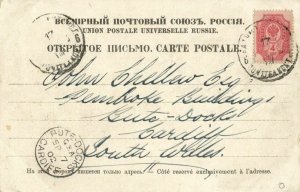 ВСЕМІРНЫЙ ПОЧТОВЫЙ СОЮЗЪ. РОССІЯ.
UNION POSTALE UNIVERSELLE RUSSIE.
ОТКРЫТОЕ ПИСЬМО. CARTE POSTALE.
John Shellew Esq
Pembroke Buildings
Bute-Docks
Cardiff
South Wales.
BUTE-DOCKS
SP 7
02
CARDIFF
На этой сторонѣ пишется только адресъ. — Côté réservé exclusivement à l'adresse.